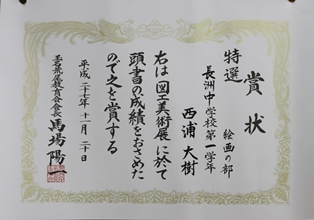 賞状
特選
絵画の部
長洲中学校第一学年
西浦大樹
右は図工美術展に於て
頭書の成績をおさめた
ので之を賞する
平成二十七年十一月二十日
玉名荒尾教育会会長 馬場陽一